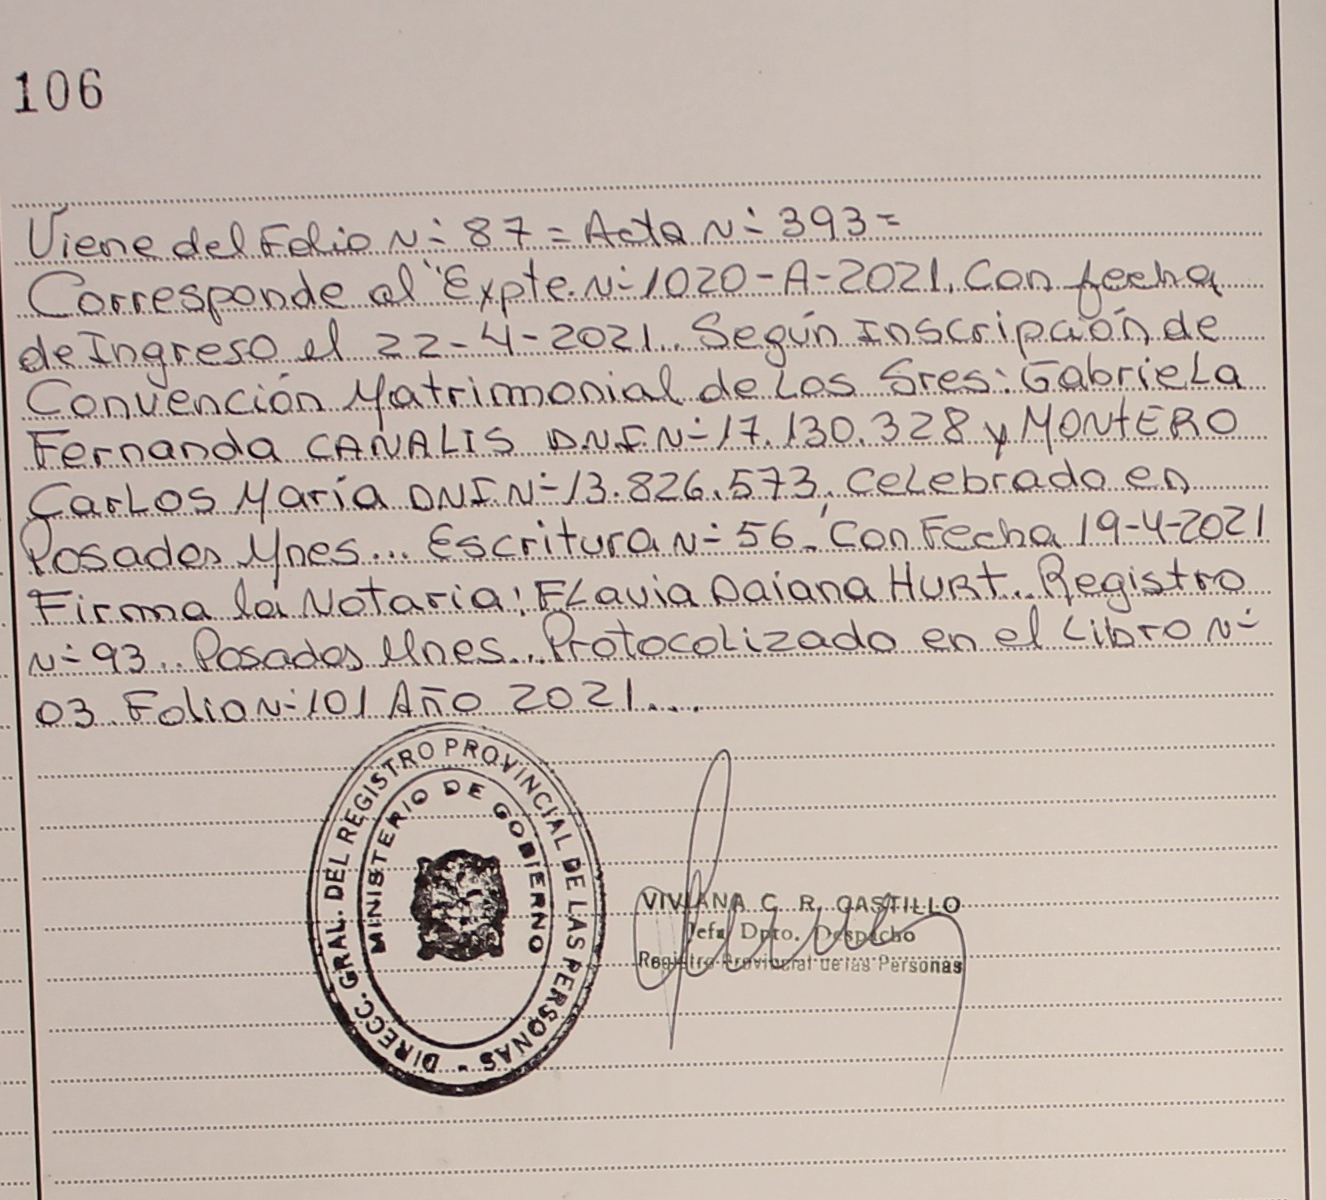 106
Viene del Folio N- 87 = Acta N- 393 =
Corresponde al Expte. N- 1020-A-2021. Con fecha
de Ingreso el 22-4-2021.. Según Inscripción de
Convención Matrimonial de Los Sres: Gabriela
Fernanda CANALIS D.N.I. N- 17.130.328 y MONTERO
Carlos María DNI. N- 13.826.573. Celebrado en
Posadas Mnes... Escritura N- 56. Con Fecha 19-4-2021
Firma la Notaria: Flavia Daiana HURT.. Registro
N- 93... Posadas Mnes... Protocolizado en el Libro N-
03. Folio N- 101 Año 2021....
DIRECC. GRAL. DEL REGISTRO PROVINCIAL DE LAS PERSONAS -
MINISTERIO DE GOBIERNO
VIVIANA C. R. CASTILLO
Jefa Dpto. Despacho
Registro Provincial de las Personas